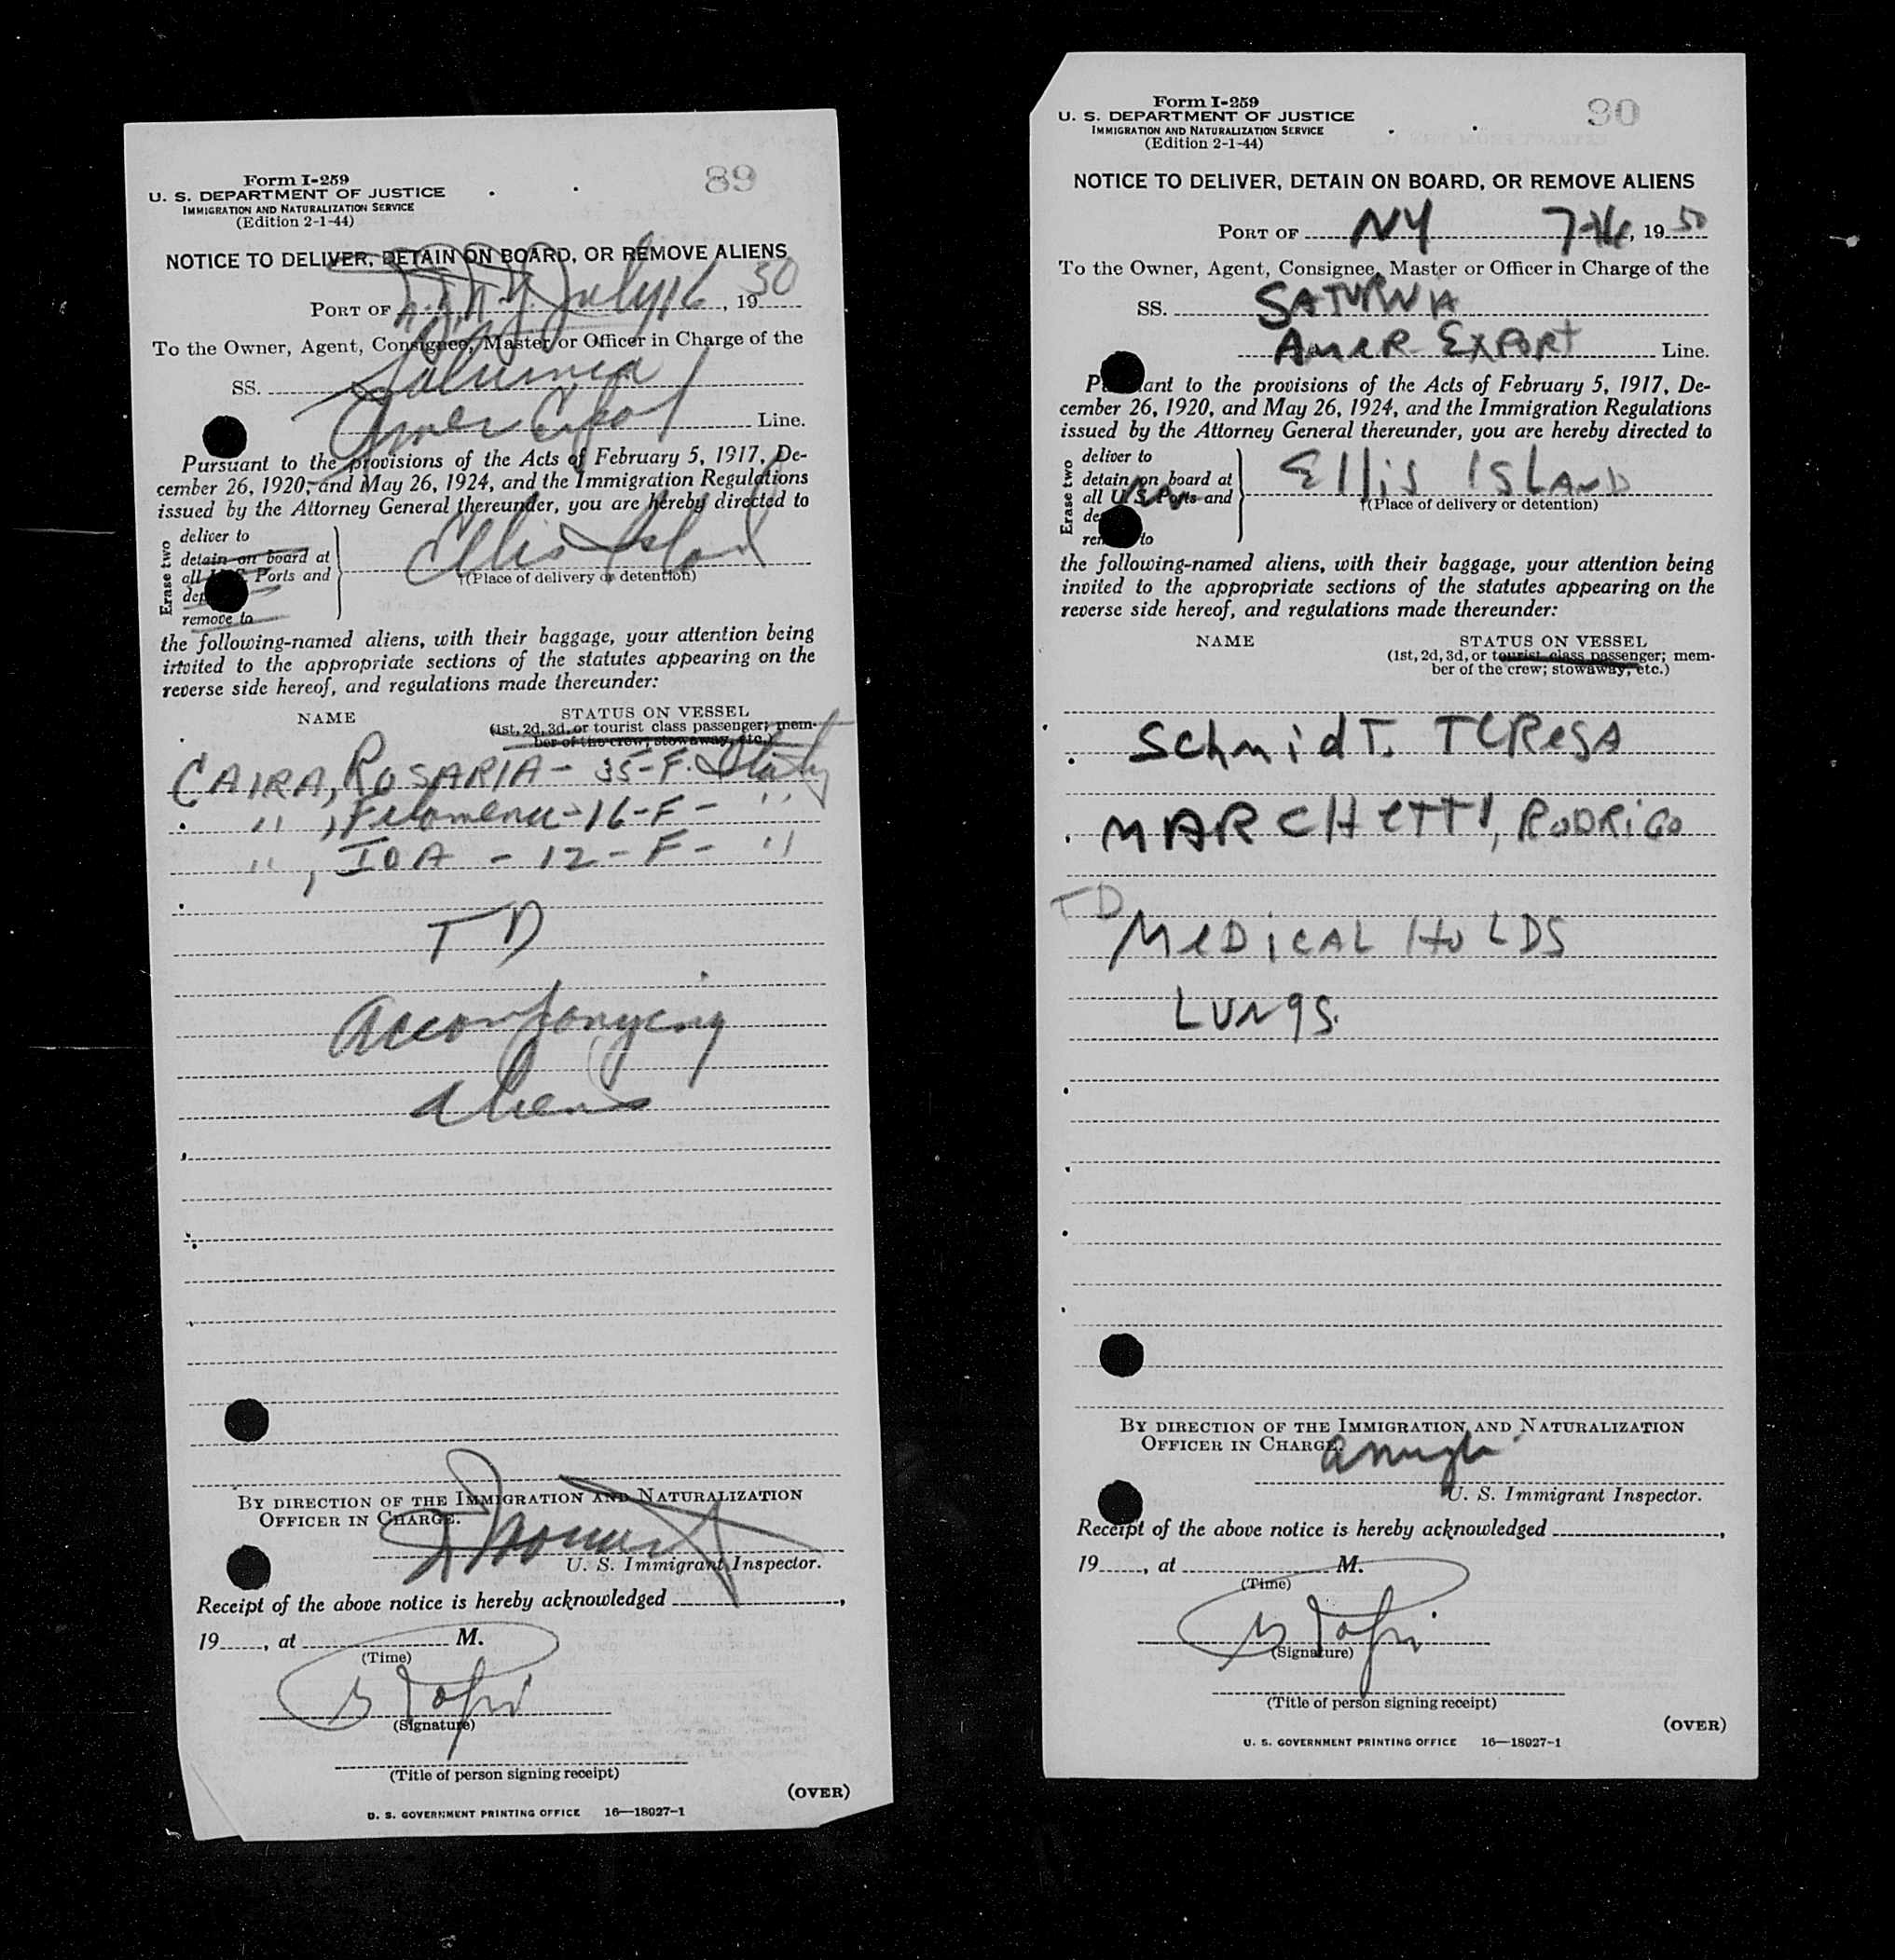 89
Form I-259
U. S. DEPARTMENT OF JUSTICE
IMMIGRATION AND NATURALIZATION SERVICE
(Edition 2-1-44)
NOTICE TO DELIVER, DETAIN ON BOARD, OR REMOVE ALIENS
PORT OF N.Y. July 16, 1950
To the Owner, Agent, Consignee, Master or Officer in Charge of the
SS. Saturnia
Amer Export Line.
Pursuant to the provisions of the Acts of February 5, 1917, De-
cember 26, 1920, and May 26, 1924, and the Immigration Regulations
issued by the Attorney General thereunder, you are hereby directed to
Erase two
deliver to
detain on board at
all U. S. Ports and
remove to
Ellis Island
†(Place of delivery or detention)
the following-named aliens, with their baggage, your attention being
invited to the appropriate sections of the statutes appearing on the
reverse side hereof, and regulations made thereunder:
NAME STATUS ON VESSEL
(1st, 2d, 3d, or tourist class passenger; mem-
ber of the crew; stowaway, etc.)
CAIRA, ROSARIA - 35 - F. Italy
" , Filomena - 16 - F - "
" , IDA - 12 - F - "
TD
Accompanying
aliens
BY DIRECTION OF THE IMMIGRATION AND NATURALIZATION
OFFICER IN CHARGE.
U. S. Immigrant Inspector.
Receipt of the above notice is hereby acknowledged ,
19 , at M.
(Time)
(Signature)
(Title of person signing receipt)
(OVER)
U. S. GOVERNMENT PRINTING OFFICE 16—18927-1
90
Form I-259
U. S. DEPARTMENT OF JUSTICE
IMMIGRATION AND NATURALIZATION SERVICE
(Edition 2-1-44)
NOTICE TO DELIVER, DETAIN ON BOARD, OR REMOVE ALIENS
PORT OF NY 7-16, 1950
To the Owner, Agent, Consignee, Master or Officer in Charge of the
SS. SATURNIA
AMER EXPORT Line.
Pursuant to the provisions of the Acts of February 5, 1917, De-
cember 26, 1920, and May 26, 1924, and the Immigration Regulations
issued by the Attorney General thereunder, you are hereby directed to
Erase two
deliver to
detain on board at
all U. S. Ports and
remove to
Ellis Island
†(Place of delivery or detention)
the following-named aliens, with their baggage, your attention being
invited to the appropriate sections of the statutes appearing on the
reverse side hereof, and regulations made thereunder:
NAME STATUS ON VESSEL
(1st, 2d, 3d, or tourist class passenger; mem-
ber of the crew; stowaway, etc.)
Schmidt, Teresa
MARCHETTI, RODRIGO
TD
MEDICAL HOLDS
LUNGS.
BY DIRECTION OF THE IMMIGRATION AND NATURALIZATION
OFFICER IN CHARGE.
U. S. Immigrant Inspector.
Receipt of the above notice is hereby acknowledged ,
19 , at M.
(Time)
(Signature)
(Title of person signing receipt)
(OVER)
U. S. GOVERNMENT PRINTING OFFICE 16—18927-1